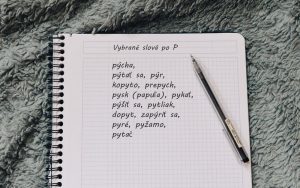 Vybrané slová po P
pýcha,
pýtať sa, pýr,
kopyto, prepych,
pysk (papuľa), pykať,
pýšiť sa, pytliak,
dopyt, zapýriť sa,
pyré, pyžamo,
pytač